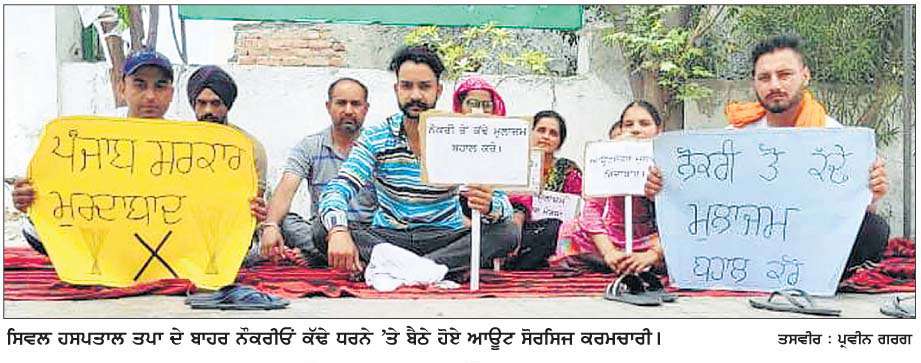 ਪੰਜਾਬ ਸਰਕਾਰ
ਮੁਰਦਾਬਾਦ
ਨੌਕਰੀ ਤੋਂ ਕੱਢੇ ਮੁਲਾਜਮ
ਬਹਾਲ ਕਰੋ।
ਨੌਕਰੀ ਤੋਂ ਕੱਢੇ
ਮੁਲਾਜਮ
ਬਹਾਲ ਕਰੋ
ਸਿਵਲ ਹਸਪਤਾਲ ਤਪਾ ਦੇ ਬਾਹਰ ਨੌਕਰੀਓਂ ਕੱਢੇ ਧਰਨੇ 'ਤੇ ਬੈਠੇ ਹੋਏ ਆਊਟ ਸੋਰਸਿਜ ਕਰਮਚਾਰੀ। ਤਸਵੀਰ : ਪ੍ਰਵੀਨ ਗਰਗ